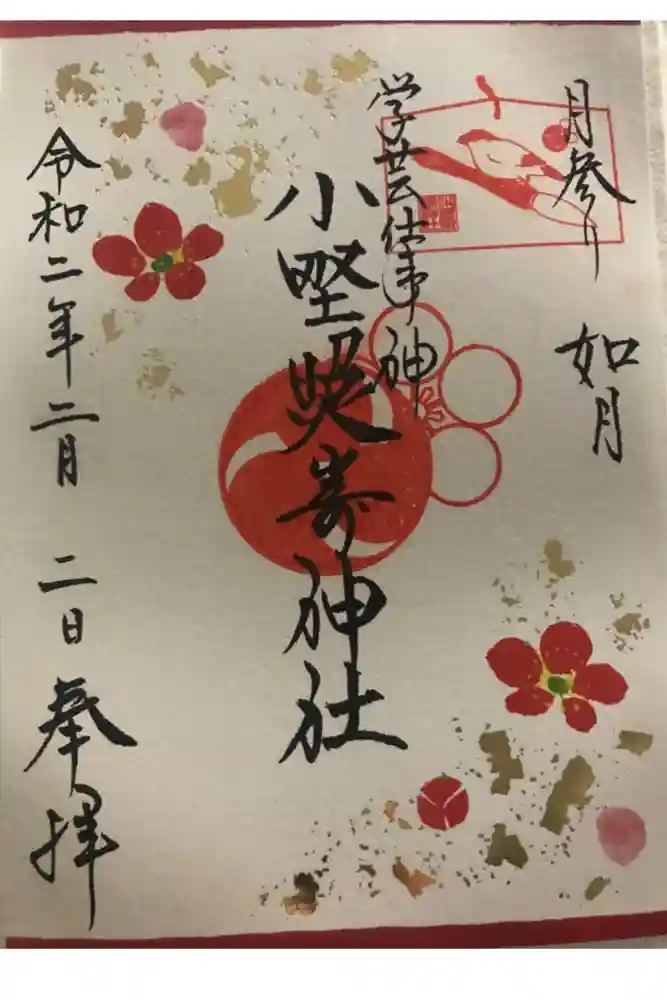 月参り 如月
学芸仕事神
小野照嵜神社
令和二年二月 二日 奉拝